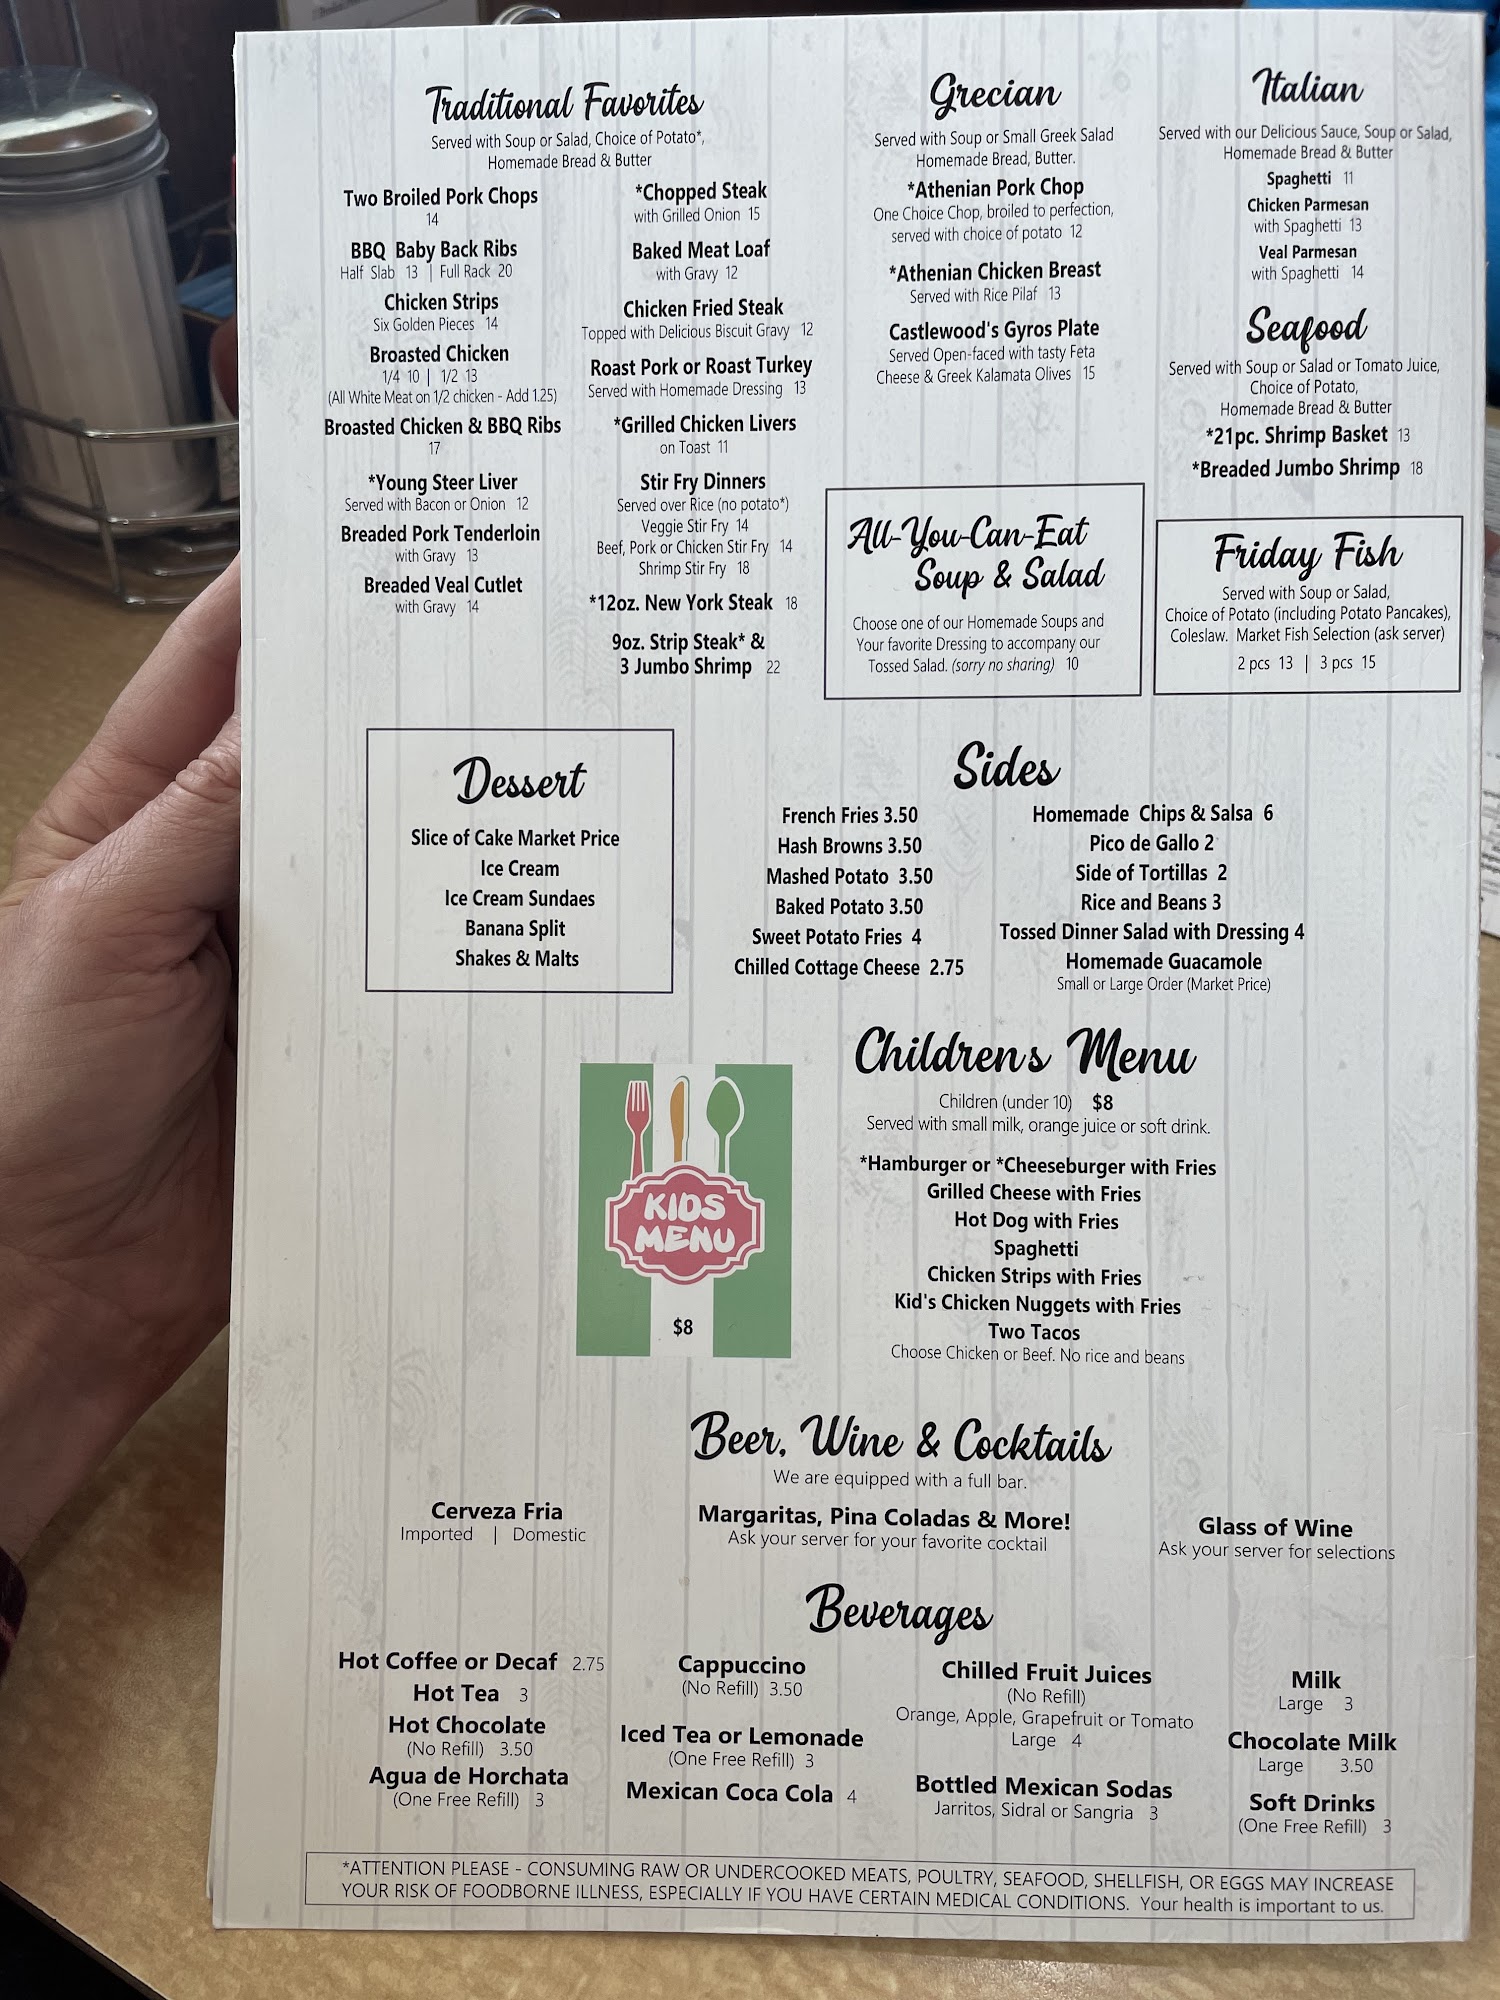 Traditional Favorites
Served with Soup or Salad, Choice of Potato*,
Homemade Bread & Butter
Two Broiled Pork Chops
14
BBQ Baby Back Ribs
Half Slab 13 | Full Rack 20
Chicken Strips
Six Golden Pieces 14
Broasted Chicken
1/4 10 | 1/2 13
(All White Meat on 1/2 chicken - Add 1.25)
Broasted Chicken & BBQ Ribs
17
*Young Steer Liver
Served with Bacon or Onion 12
Breaded Pork Tenderloin
with Gravy 13
Breaded Veal Cutlet
with Gravy 14
*Chopped Steak
with Grilled Onion 15
Baked Meat Loaf
with Gravy 12
Chicken Fried Steak
Topped with Delicious Biscuit Gravy 12
Roast Pork or Roast Turkey
Served with Homemade Dressing 13
*Grilled Chicken Livers
on Toast 11
Stir Fry Dinners
Served over Rice (no potato*)
Veggie Stir Fry 14
Beef, Pork or Chicken Stir Fry 14
Shrimp Stir Fry 18
*12oz. New York Steak 18
9oz. Strip Steak* &
3 Jumbo Shrimp 22
Grecian
Served with Soup or Small Greek Salad
Homemade Bread, Butter.
*Athenian Pork Chop
One Choice Chop, broiled to perfection,
served with choice of potato 12
*Athenian Chicken Breast
Served with Rice Pilaf 13
Castlewood's Gyros Plate
Served Open-faced with tasty Feta
Cheese & Greek Kalamata Olives 15
Italian
Served with our Delicious Sauce, Soup or Salad,
Homemade Bread & Butter
Spaghetti 11
Chicken Parmesan
with Spaghetti 13
Veal Parmesan
with Spaghetti 14
Seafood
Served with Soup or Salad or Tomato Juice,
Choice of Potato,
Homemade Bread & Butter
*21pc. Shrimp Basket 13
*Breaded Jumbo Shrimp 18
All-You-Can-Eat
Soup & Salad
Choose one of our Homemade Soups and
Your favorite Dressing to accompany our
Tossed Salad. (sorry no sharing) 10
Friday Fish
Served with Soup or Salad,
Choice of Potato (including Potato Pancakes),
Coleslaw. Market Fish Selection (ask server)
2 pcs 13 | 3 pcs 15
Dessert
Slice of Cake Market Price
Ice Cream
Ice Cream Sundaes
Banana Split
Shakes & Malts
Sides
French Fries 3.50
Hash Browns 3.50
Mashed Potato 3.50
Baked Potato 3.50
Sweet Potato Fries 4
Chilled Cottage Cheese 2.75
Homemade Chips & Salsa 6
Pico de Gallo 2
Side of Tortillas 2
Rice and Beans 3
Tossed Dinner Salad with Dressing 4
Homemade Guacamole
Small or Large Order (Market Price)
KIDS
MENU
$8
Children's Menu
Children (under 10) $8
Served with small milk, orange juice or soft drink.
*Hamburger or *Cheeseburger with Fries
Grilled Cheese with Fries
Hot Dog with Fries
Spaghetti
Chicken Strips with Fries
Kid's Chicken Nuggets with Fries
Two Tacos
Choose Chicken or Beef. No rice and beans
Beer, Wine & Cocktails
We are equipped with a full bar.
Cerveza Fria
Imported | Domestic
Margaritas, Pina Coladas & More!
Ask your server for your favorite cocktail
Glass of Wine
Ask your server for selections
Beverages
Hot Coffee or Decaf 2.75
Hot Tea 3
Hot Chocolate
(No Refill) 3.50
Agua de Horchata
(One Free Refill) 3
Cappuccino
(No Refill) 3.50
Iced Tea or Lemonade
(One Free Refill) 3
Mexican Coca Cola 4
Chilled Fruit Juices
(No Refill)
Orange, Apple, Grapefruit or Tomato
Large 4
Bottled Mexican Sodas
Jarritos, Sidral or Sangria 3
Milk
Large 3
Chocolate Milk
Large 3.50
Soft Drinks
(One Free Refill) 3
*ATTENTION PLEASE - CONSUMING RAW OR UNDERCOOKED MEATS, POULTRY, SEAFOOD, SHELLFISH, OR EGGS MAY INCREASE
YOUR RISK OF FOODBORNE ILLNESS, ESPECIALLY IF YOU HAVE CERTAIN MEDICAL CONDITIONS. Your health is important to us.